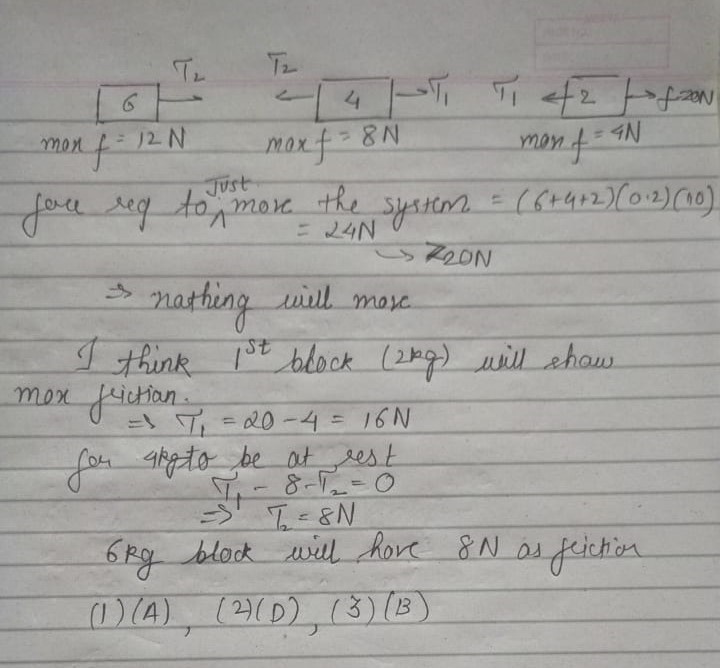 T₂ T₂
6 4 T₁ T₁ 2 f=20N
max f = 12 N max f = 8 N max f = 4N
force req to just move the system = (6+4+2)(0.2)(10)
= 24N
→ >20N
⇒ nothing will move
I think 1st block (2kg) will show
max friction.
⇒ T₁ = 20 - 4 = 16N
for 4kg to be at rest
T₁ - 8 - T₂ = 0
⇒ T₂ = 8N
6kg block will have 8N as friction
(1)(A), (2)(D), (3)(B)